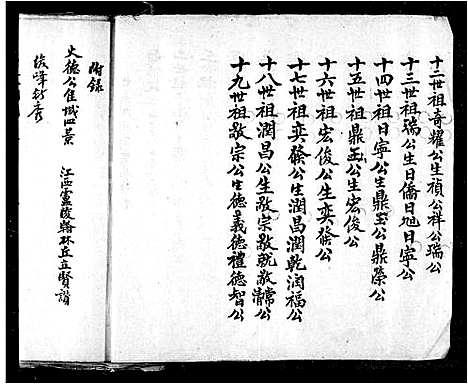 十二世祖奇耀公生禎公祥公瑞公
十三世祖瑞公生日僑日旭日寧公
十四世祖日寧公生鼎玉公鼎榮公
十五世祖鼎玉公生宏俊公
十六世祖宏俊公生奕發公
十七世祖奕發公生潤昌潤乾润福公
十八世祖潤昌公生敬宗敬就敬常公
十九世祖敬宗公生德義德禮德智公
附錄
大德公佳城四景
江西盧陵翰林丘立賢譜
後峰